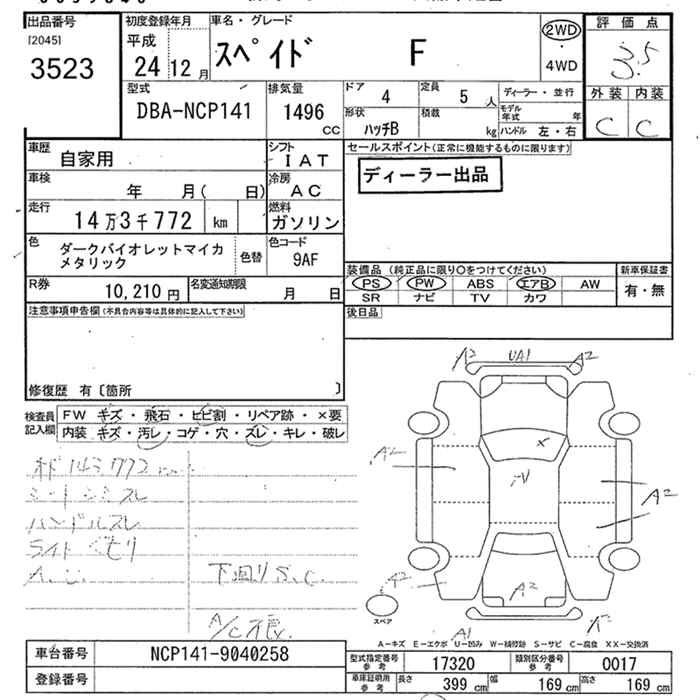 出品番号 初度登録年月 車名・グレード 評価点
[2045] 平成
3523 24 12月 スペイド F 2WD・4WD 3.5
外装 内装
C C
型式 排気量 ドア 4 定員 5人 ディーラー・並行
DBA-NCP141 1496 cc 形状 ハッチB 積載 kg モデル年式 年
ハンドル 左・右
車歴 自家用 シフト IAT セールスポイント(正常に機能するものに限ります)
車検 年 月( 日) 冷房 AC ディーラー出品
走行 14万3千772 km 燃料 ガソリン
色 ダークバイオレットマイカ 色替 色コード
メタリック 9AF
装備品(純正品に限り○をつけてください) 新車保証書
PS PW ABS エアB AW 有・無
SR ナビ TV カワ
R券 10,210円 名変通知期限 月 日
後日品
注意事項申告欄(不具合内容等は具体的に記入して下さい)
修復歴 有〔箇所 〕
検査員記入欄 FW キズ・飛石・ヒビ割・リペア跡・×要
内装 キズ・汚レ・コゲ・穴・スレ・キレ・破レ
143772
シートシミスレ
ハンドルスレ
ライトくもり
A.U.
下回りS.C.
A2 UA1 A2
A2
A2
A2
A2
A1
スペア
A-キズ E-エクボ U-凹み W-補修跡 S-サビ C-腐食 XX-交換済
車台番号 NCP141-9040258
登録番号
型式指定番号参考 17320 類別区分番号参考 0017
車庫証明用参考 長さ 399cm 幅 169cm 高さ 169cm